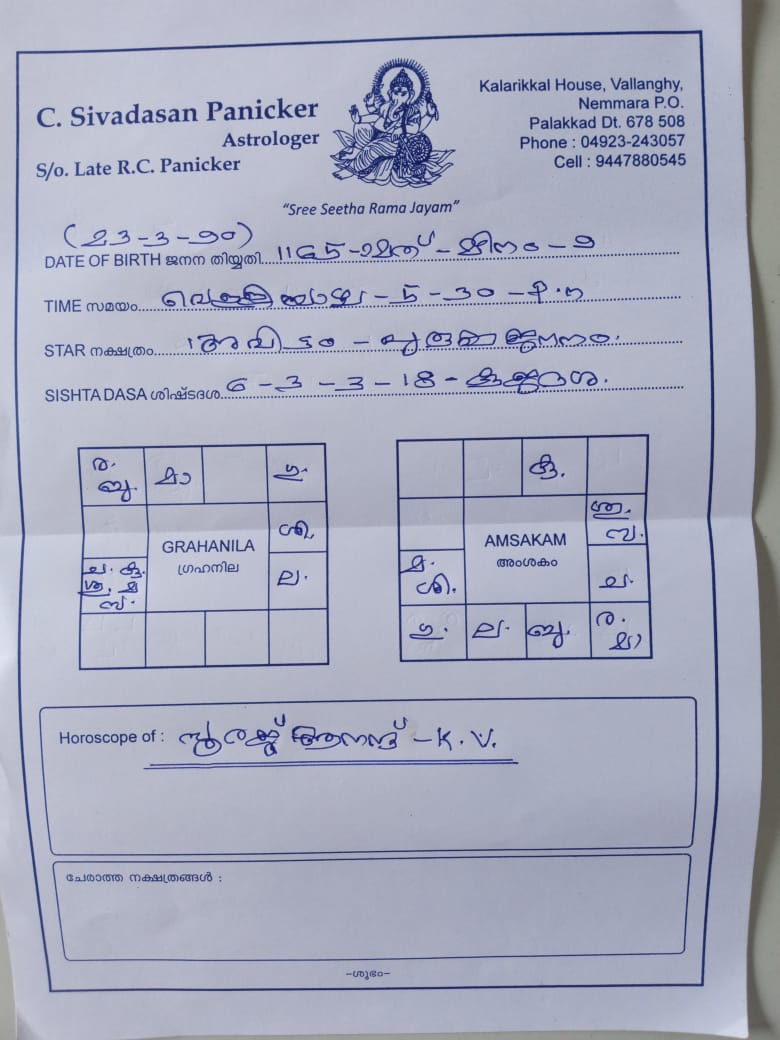 C. Sivadasan Panicker
Astrologer
S/o. Late R.C. Panicker
Kalarikkal House, Vallanghy,
Nemmara P.O.
Palakkad Dt. 678 508
Phone : 04923-243057
Cell : 9447880545
"Sree Seetha Rama Jayam"
(23-3-90)
DATE OF BIRTH ജനന തിയ്യതി 1165-ാമത് - മീനം - 9
TIME സമയം വെള്ളിയാഴ്ച - 5 - 30 - P.m
STAR നക്ഷത്രം അവിട്ടം - പുരുഷജനനം.
SISHTA DASA ശിഷ്ടദശ 6 - 3 - 3 - 18 - കുജദശ.
ര. ബു. മാ ഗു.
ശി.
GRAHANILA
ഗ്രഹനില
ച. കു. ശു. മ സ.
ല.
കു.
ശു. സ.
AMSAKAM
അംശകം
മ. ശി.
ച.
ഗു. ല. ബു. ര. മാ
Horoscope of : സൂരജ് ആനന്ദ് - K.V.
ചേരാത്ത നക്ഷത്രങ്ങൾ :
-ശുഭം-